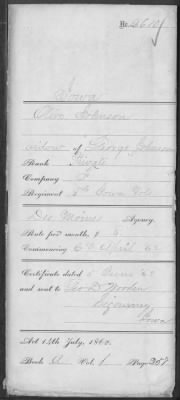 No. 26101
Iowa
Olive Johnson
widow of George Johnson
Rank Private
Company F
Regiment 5th Iowa Vols
Des Moines Agency.
Rate per month, $ 8
Commencing 6th April '62
Certificate dated 5
and sent to Geo D Woodin
Sigourney
Iowa
Act 14th July, 1862.
Book A Vol. 1 Page 257